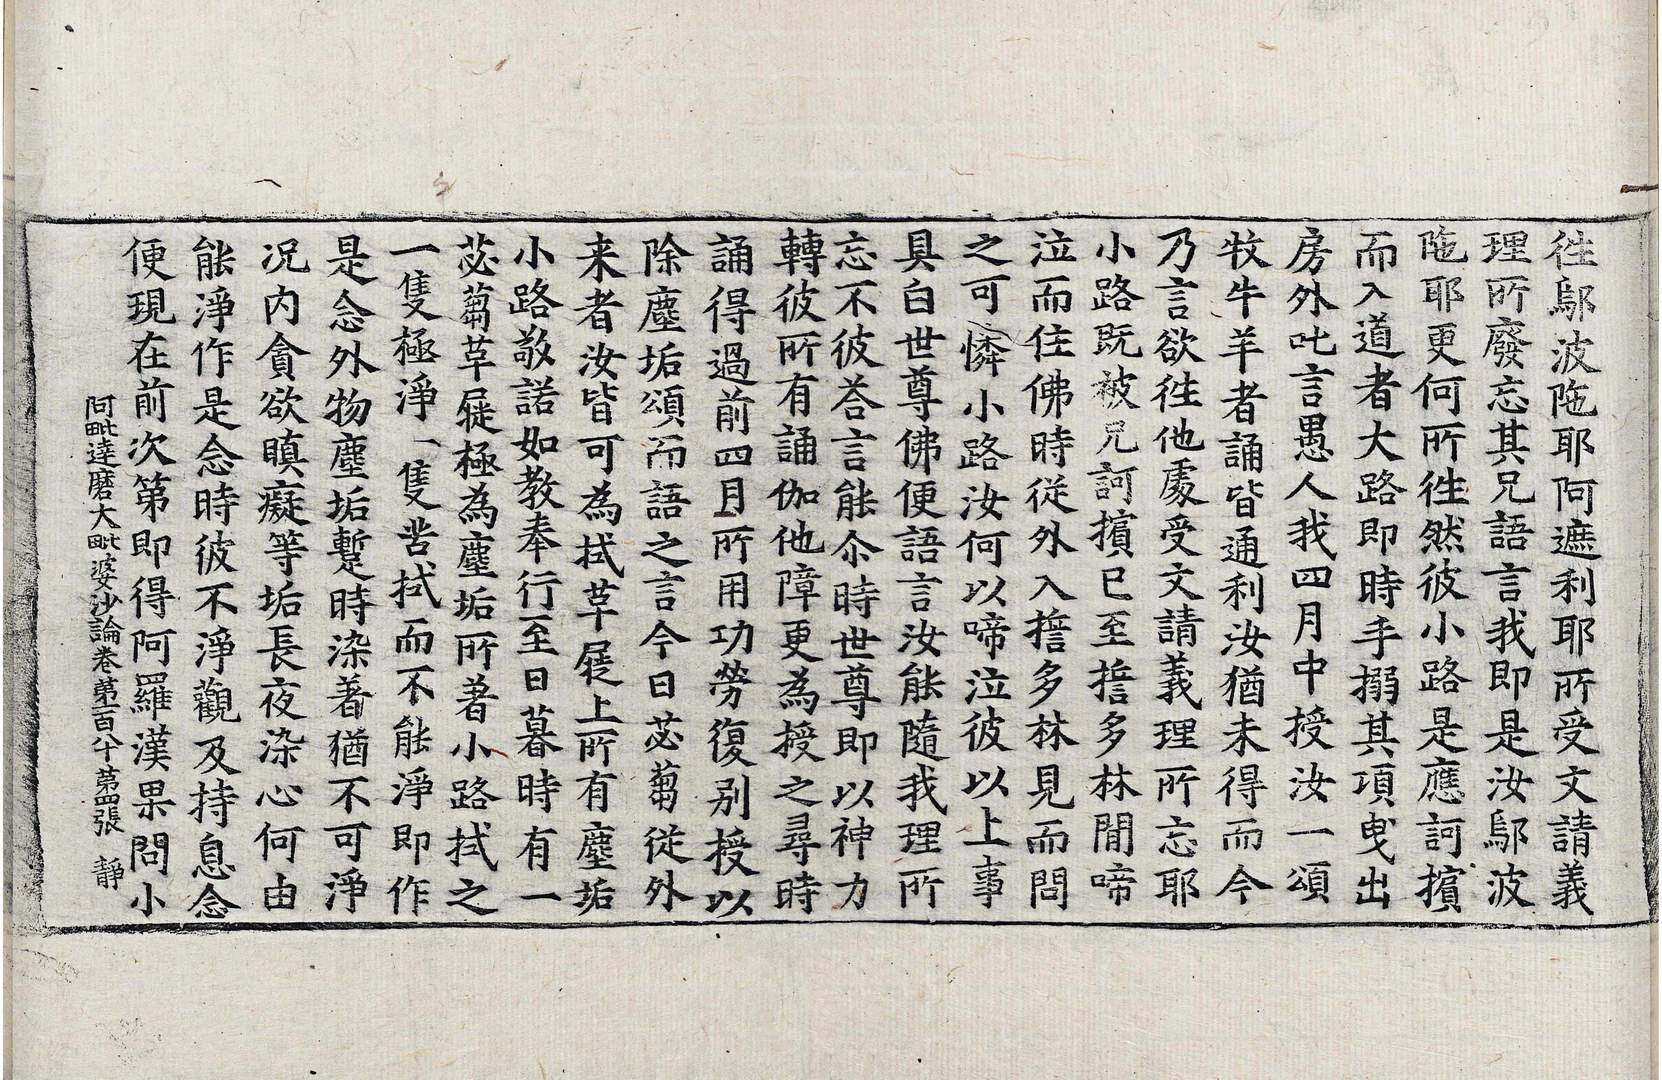 徃鄔波陁耶阿遮利耶所受文請義
理所廢忘其兄語言我即是汝鄔波
陁耶更何所徃然彼小路是應訶擯
而入道者大路即時手搦其項曵出
房外叱言愚人我四月中授汝一頌
牧牛羊者誦皆通利汝猶未得而今
乃言欲徃他處受文請義理所忘耶
小路既被兄訶擯已至誓多林閒啼
泣而住佛時從外入誓多林見而問
之可憐小路汝何以啼泣彼以上事
具白世尊佛便語言汝能隨我理所
忘不彼荅言能尒時世尊即以神力
轉彼所有誦伽他障更為授之尋時
誦得過前四月所用功勞復別授以
除塵垢頌而語之言今日苾蒭從外
来者汝皆可為拭革屣上所有塵垢
小路敬諾如教奉行至日暮時有一
苾蒭革屣極為塵垢所著小路拭之
一隻極淨一隻苦拭而不能淨即作
是念外物塵垢蹔時染著猶不可淨
况内貪欲瞋癡等垢長夜染心何由
能淨作是念時彼不淨觀及持息念
便現在前次第即得阿羅漢果問小
阿毗達磨大毗婆沙論卷第一百八十第四張 靜